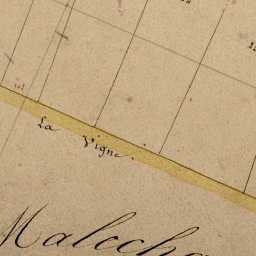 La Vigne.
Malecha